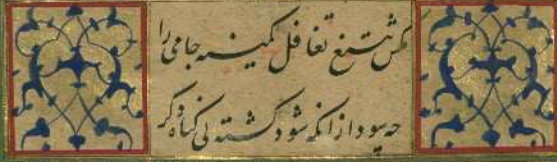 مکش بتیغ تغافل کمینه جامی را
چه سود از آنکه شود کشته بی گناه دگر